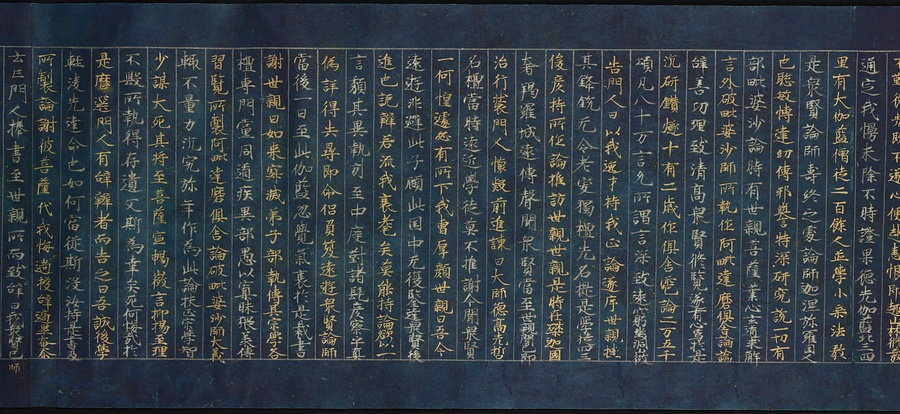 通定我慢未除不時證果德光伽藍北三四
里有大伽藍僧徒二百餘人並學小乘法教
是衆賢論師壽終之處論師迦濕弥羅國人
也聰敏博達幼傳雅譽特深研究說一切有
部毗婆沙論時有世親菩薩一心玄道求解
言外破毗婆沙師所執作阿毗達磨俱舍論
辭義善巧理致清高衆賢修覽遂有心焉於是
沉研鑽極十有二歲作俱舍雹論二万五千
頌凡八十万言矣所謂言深致遠窮幽洞微
告門人曰以我逸才持我正論逐斥世親挫
其鋒銳无令老叟獨擅先名於是學徒四三
俊彥持所作論推訪世親世親是時在磔迦國
奢羯羅城遠傳聲聞衆賢當至世親聞已即
治行裝門人懷疑前進諫曰大師德高先哲
名擅當時遠近學徒莫不推謝今聞衆賢
一何惶遽必有所下我曹厚顏世親曰吾今
遠遊非避此子顧此國中无復鑒達衆賢後
進也詭辯若流我衰耄矣莫能持論欲以一
言頹其異執引至中印度對諸髦彥察乎真
偽詳乎得失尋即命侶負笈遠遊衆賢論師
當後一日至此伽藍忽覺氣衰於是裁書
謝世親曰如來寂滅弟子部執傳其宗學各
擅專門黨同道疾異部愚以寡昧猥承傳
習覽所製阿毗達磨俱舍論破毗婆沙師大義
輒不量力沉究弥年作為此論扶正宗學智
少謀大死其將至菩薩宣暢微言抑揚至理
不毀所執得存遺文斯為幸矣死何悔哉於
是歷選門人有辭辯者而告之曰吾誠後學
輕凌先達命也如何當從斯沒汝持是書及
所製論謝彼菩薩代我悔過授辭適畢奄尒
云亡門人捧書至世親所而致辭曰我師